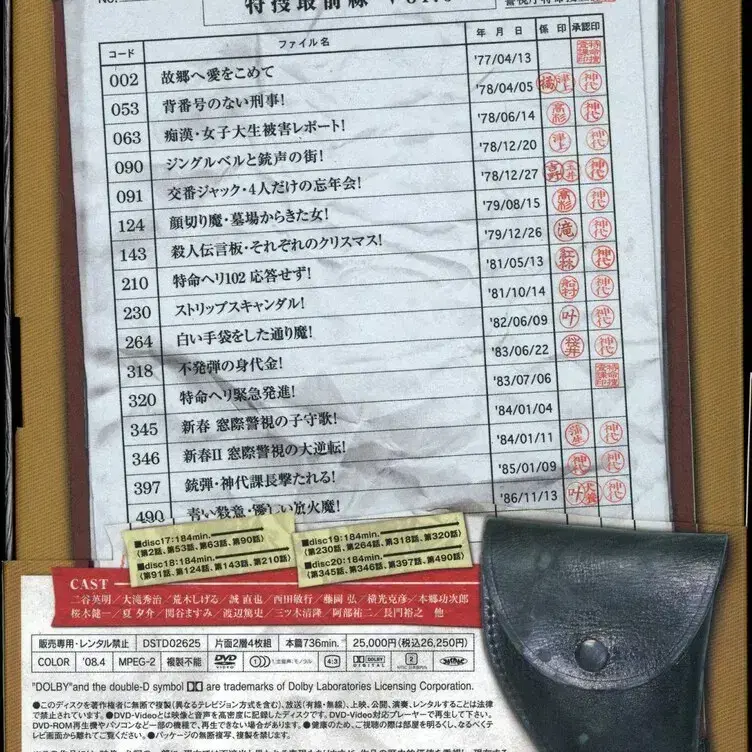 特捜最前線
コード ファイル名 年月日 係印 承認印
002 故郷へ愛をこめて '77/04/13
053 背番号のない刑事! '78/04/05 橘 津上 神代
063 痴漢・女子大生被害レポート! '78/06/14 高杉 神代
090 ジングルベルと銃声の街! '78/12/20 津上 神代
091 交番ジャック・4人だけの忘年会! '78/12/27 吉野 玉井 神代
124 顔切り魔・墓場からきた女! '79/08/15 高杉 神代
143 殺人伝言板・それぞれのクリスマス! '79/12/26 滝 神代
210 特命ヘリ102 応答せず! '81/05/13 紅林 神代
230 ストリップスキャンダル! '81/10/14 船村 神代
264 白い手袋をした通り魔! '82/06/09 叶 神代
318 不発弾の身代金! '83/06/22 桜井 神代
320 特命ヘリ緊急発進! '83/07/06
345 新春 窓際警視の子守歌! '84/01/04
346 新春II 窓際警視の大逆転! '84/01/11 蒲生 神代
397 銃弾・神代課長撃たれる! '85/01/09 神代 神代
490 青い殺意・優しい放火魔! '86/11/13 叶 犬養 神代
■disc17:184min.
(第2話、第53話、第63話、第90話)
■disc18:184min.
(第91話、第124話、第143話、第210話)
■disc19:184min.
(第230話、第264話、第318話、第320話)
■disc20:184min.
(第345話、第346話、第397話、第490話)
CAST
二谷英明/大滝秀治/荒木しげる/誠 直也/西田敏行/藤岡 弘/横光克彦/本郷功次郎
桜木健一/夏 夕介/関谷ますみ/渡辺篤史/三ツ木清隆/阿部祐二/長門裕之 他
販売専用・レンタル禁止 DSTD02625 片面2層4枚組 本篇736min. 25,000円(税込26,250円)
COLOR '08.4 MPEG-2 複製不能 DVD VIDEO 1:主音声:モノラル 4:3 DOLBY DIGITAL 2 NTSC
"DOLBY"and the double-D symbol are trademarks of Dolby Laboratories Licensing Corporation.
●このディスクを著作権者に無断で複製(異なるテレビジョン方式を含む)、放送(有線・無線)、上映、公開、演奏、レンタルすることは法律
で禁止されています。●DVD-Videoとは映像と音声を高密度に記録したディスクです。DVD-Video対応プレーヤーで再生して下さい。
DVD-ROM再生機やパソコンなど一部の機種で、再生できない場合があります。●健康のため、ご視聴の際は部屋を明るくし、なるべくテ
レビ画面から離れてご覧ください。●パッケージの無断複写、複製を禁じます。